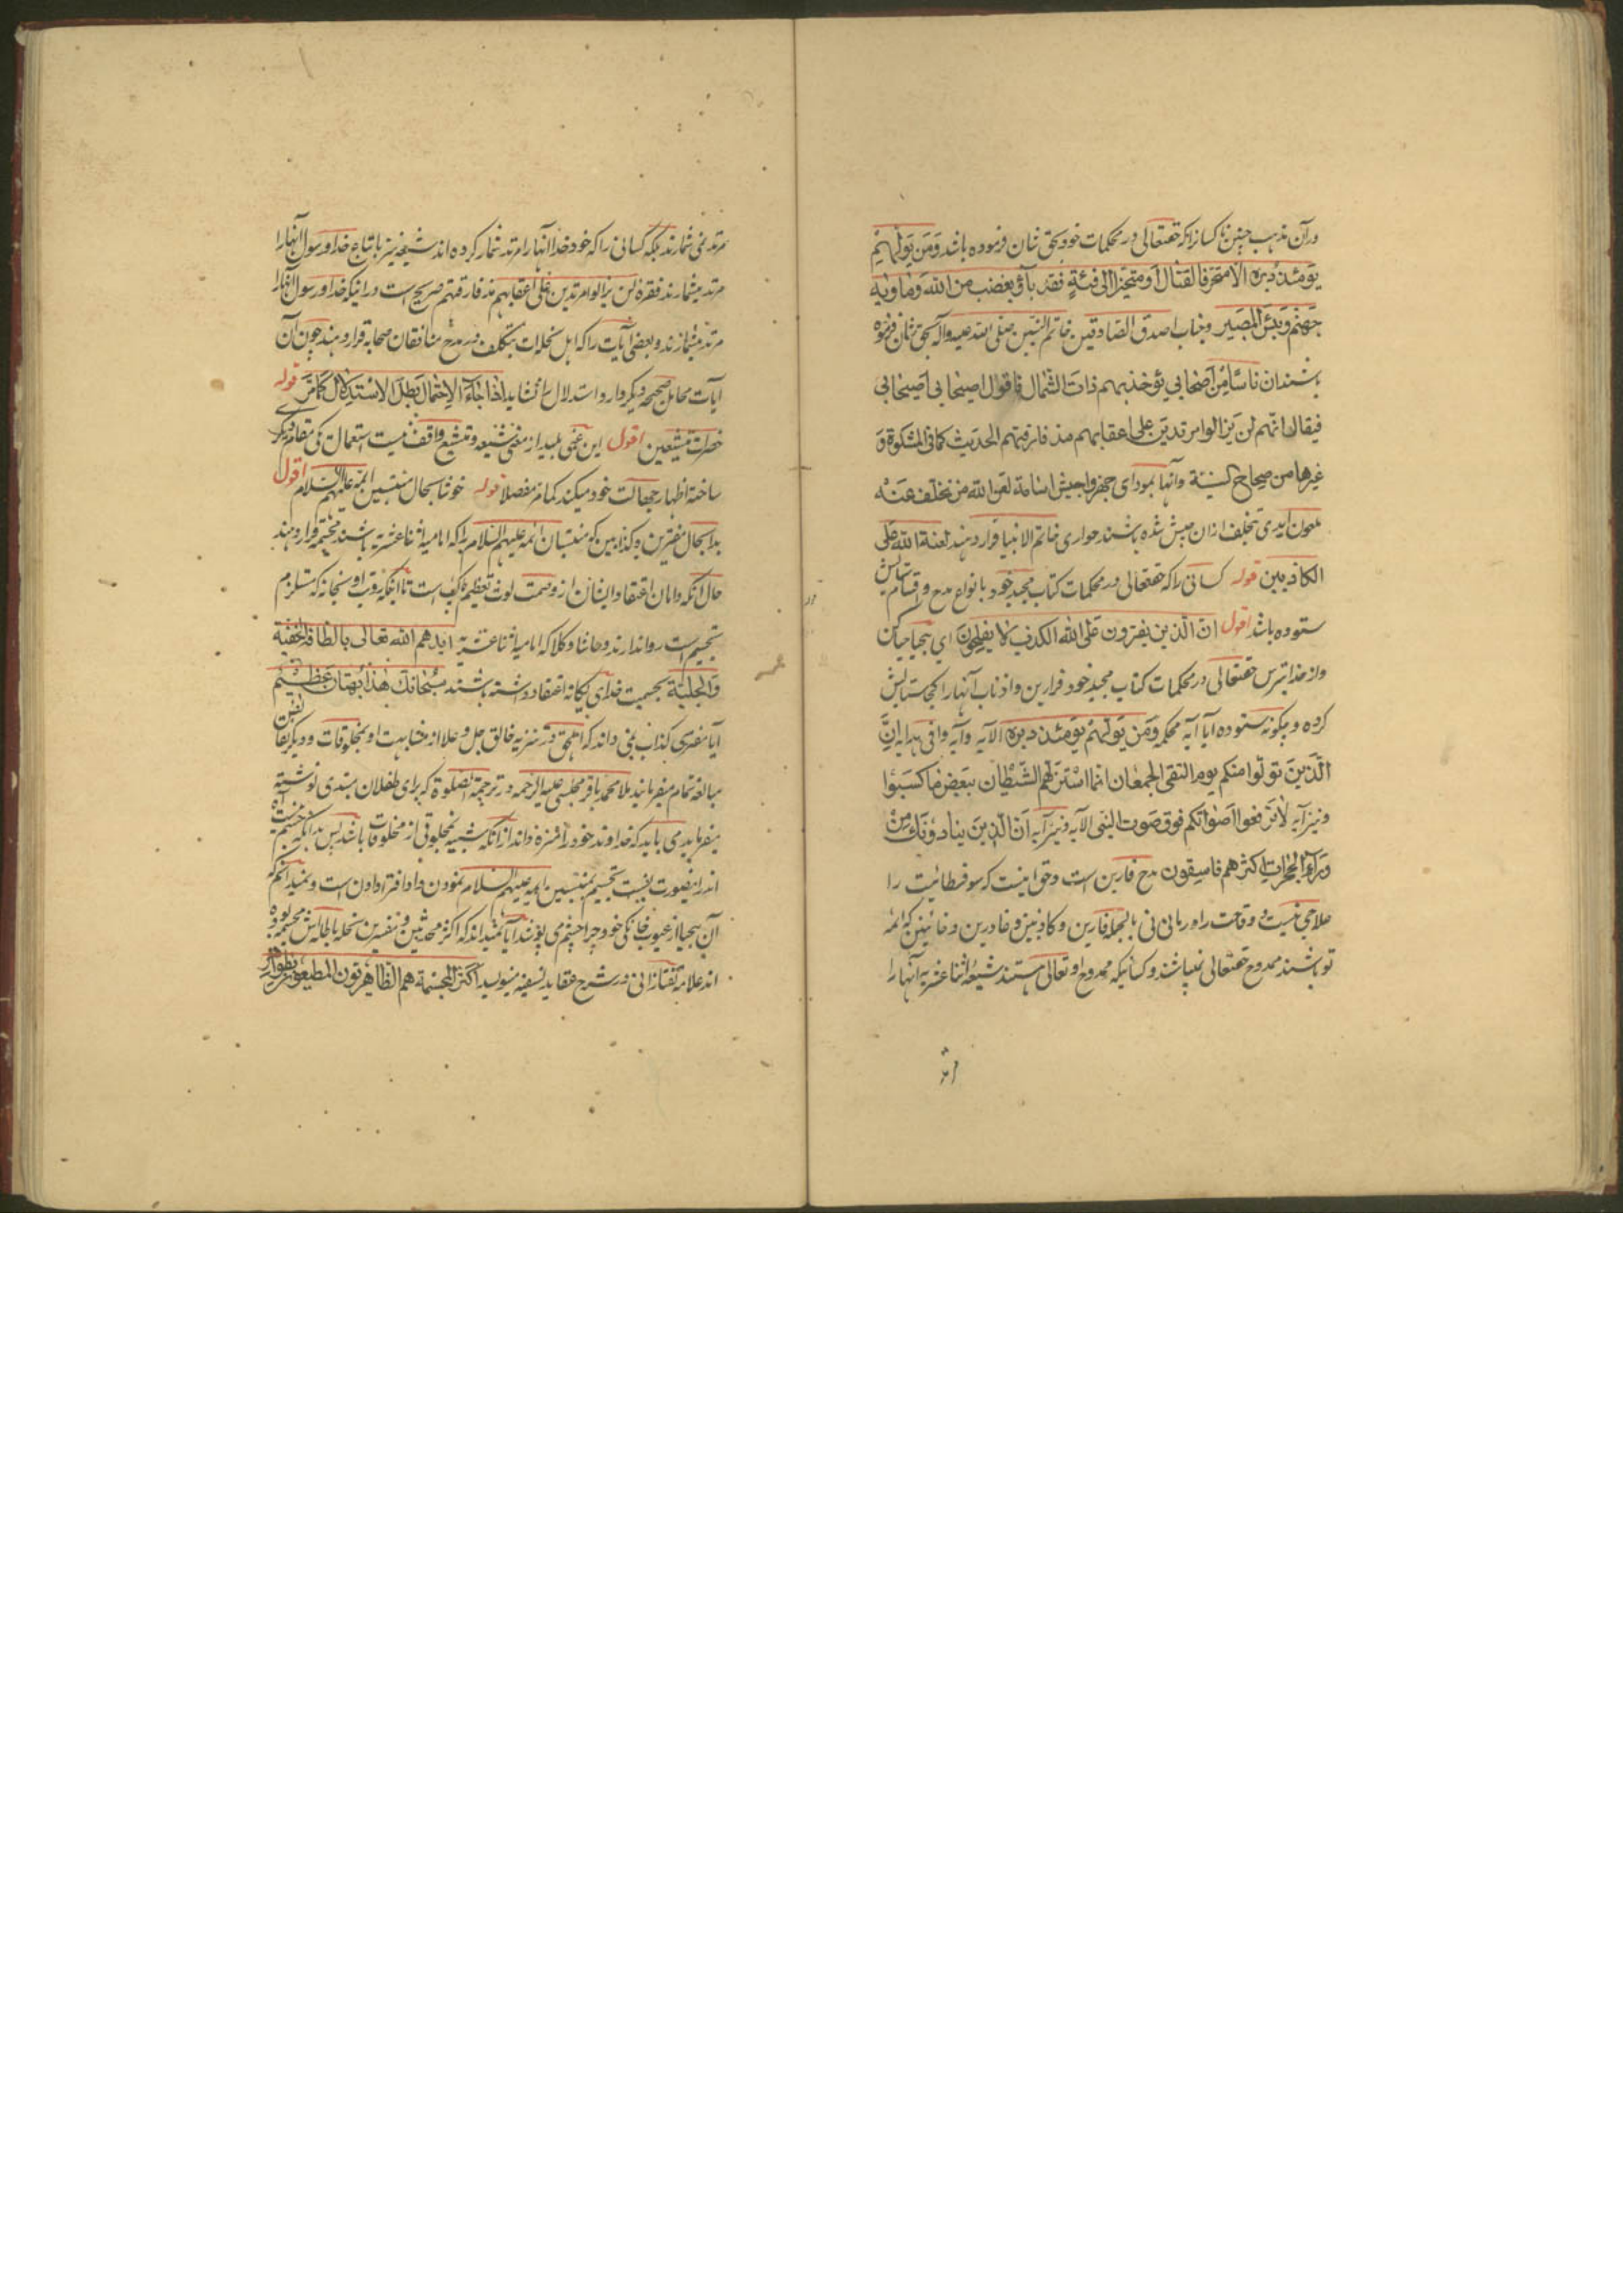 در آن مذهب چنین که کسانرا که حقتعالی در محکمات خود بحق شان فرموده باشد وَمَن یُوَلِّهِم
یَومَئِذٍ دُبُرَهُ الا متحرفا لقتال او متحیزا الی فئةٍ فقد باؤ بغضب من الله وماویه
جَهَنَّم وَبِئسَ المَصیر وجناب اصدق الصادقین خاتم النبیین صلی الله علیه وآله بحق شان فرموده
باشند ان ناسًا مِن اَصحابی یؤخذ بهم ذات الشمال فاقول اصیحابی اصیحابی
فیقال انهم لن یزالوا مرتدین علی اعقابهم مذ فارقتهم الحدیث کما فی المشکوة وَ
غیرها من صحاح السنیة وآنها بمودای جهزوا جیش اسامة لعن الله من تخلف عَنْه
ملعون ابدی بتخلف ازان جیش شده باشند حواری خاتم الانبیا قرار دهند لعنة الله علی
الکاذبین قوله کسانی را که حقتعالی در محکمات کتاب مجید خود بانواع مدح و اقسام ستایش
ستوده باشد اقول انّ الّذین یفترون علی الله الکذب لا یفلحون ای بیحیا
واز خدا بترس حقتعالی در محکمات کتاب مجید خود فارین واذناب آنها را کجا ستایش
کرده و چگونه ستوده آیا آیه محکمه وَمَن یُوَلِّهِم یَومَئِذٍ دبره الآیه وآیه وافی هدایه اِنَّ
الّذین تولّوا منکم یوم التقی الجمعان انما استزلّهم الشّیطان ببعض ما کسبوا
ونیز آیه لا ترفعوا اصواتکم فوق صوت النبی الآیه ونیز آیه انّ الذین ینادونک مِن
وَراءِ الحجرات اکثرهم فاسقون مدح فارین است وحق اینست که سوفسطائیت را
علاجی نیست و وقاحت را درمانی نی بالجمله فارین و کاذبین و غادرین و خائنین که ائمه
تو باشند ممدوح حقتعالی نمیباشند و کسانیکه ممدوح او تعالی هستند شیعه اثنا عشریه آنها را
مرتد
مرتد نمی شمارند بلکه کسانی را که خود خدا آنها را مرتد شمار کرده اند شیعه نیز باتباع خدا و رسول آنها را
مرتد میشمارند فقره لن یزالوا مرتدین علی اعقابهم مذ فارقتهم صریح است در اینکه خدا و رسول آنها را
مرتد میشمارند و بعضی آیات را که اهل نحلات بتکلف در مدح منافقان صحابه قرار دهند چون آن
آیات محامل صحیحه دیگر دارد استدلال را نشاید اذا جاء الاحتمال بطل الاستدلال کما مرّ قوله
حضرات متشیعین اقول این غبی بلید از معنی شیعه و تشیع واقف نیست استعمال یکی مقام دیگری
ساخته اظهار جهالت خود میکند کما مرّ مفصلا قوله خوشا بحال منتسبین ائمه علیهم السلام اقول
بدا بحال مفترین و کذابین که منتسبان ائمه علیهم السلام را که امامیه اثنا عشریه باشند مجسمه قرار دهند
حال آنکه دامان اعتقاد ایشان از وصمت لوث تعظیم پاکست تا اینکه رؤیت او سبحانه که مستلزم
تجسیم است روا ندارند و حاشا و کلا که امامیه اثنا عشریه ایدهم الله تعالی بالطافه الخفیة
وَالجلیّة بجسمیت خدای یگانه اعتقاد داشته باشند سبحانک هٰذا بهتان عظیم
آیا مفتری کذاب نمی داند که اهلحق در تنزیه خالق جل و علا از مشابهت او بمخلوقات و دیگر نقایص
مبالغه تمام میفرمایند ملا محمد باقر مجلسی علیه الرحمه در ترجمه الصلوة که برای طفلان مبتدی نوشته
میفرماید می باید که خداوند خود را منزه داند از آنکه شبیه بمخلوقی از مخلوقات باشد پس بدانکه جسم نیست آه
اندرینصورت نسبت تجسیم بمنتسبین ائمه علیهم السلام نمودن داد افترا دادن است و نمیدانم که
آن بیحیا از عیوب خانگی خود چرا چشم می پوشد آیا نمیداند که اکثر محدثین و مفسرین نحله باطله اش مجسمه بوده
اند علامه تفتازانی در شرح عقاید نسفیه مینویسد اکثر المجسمة هم الظاهریّون المطیعون بظواهر